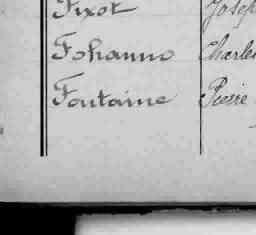 Fixot Josep
Fohanno Charles
Fontaine Pierre